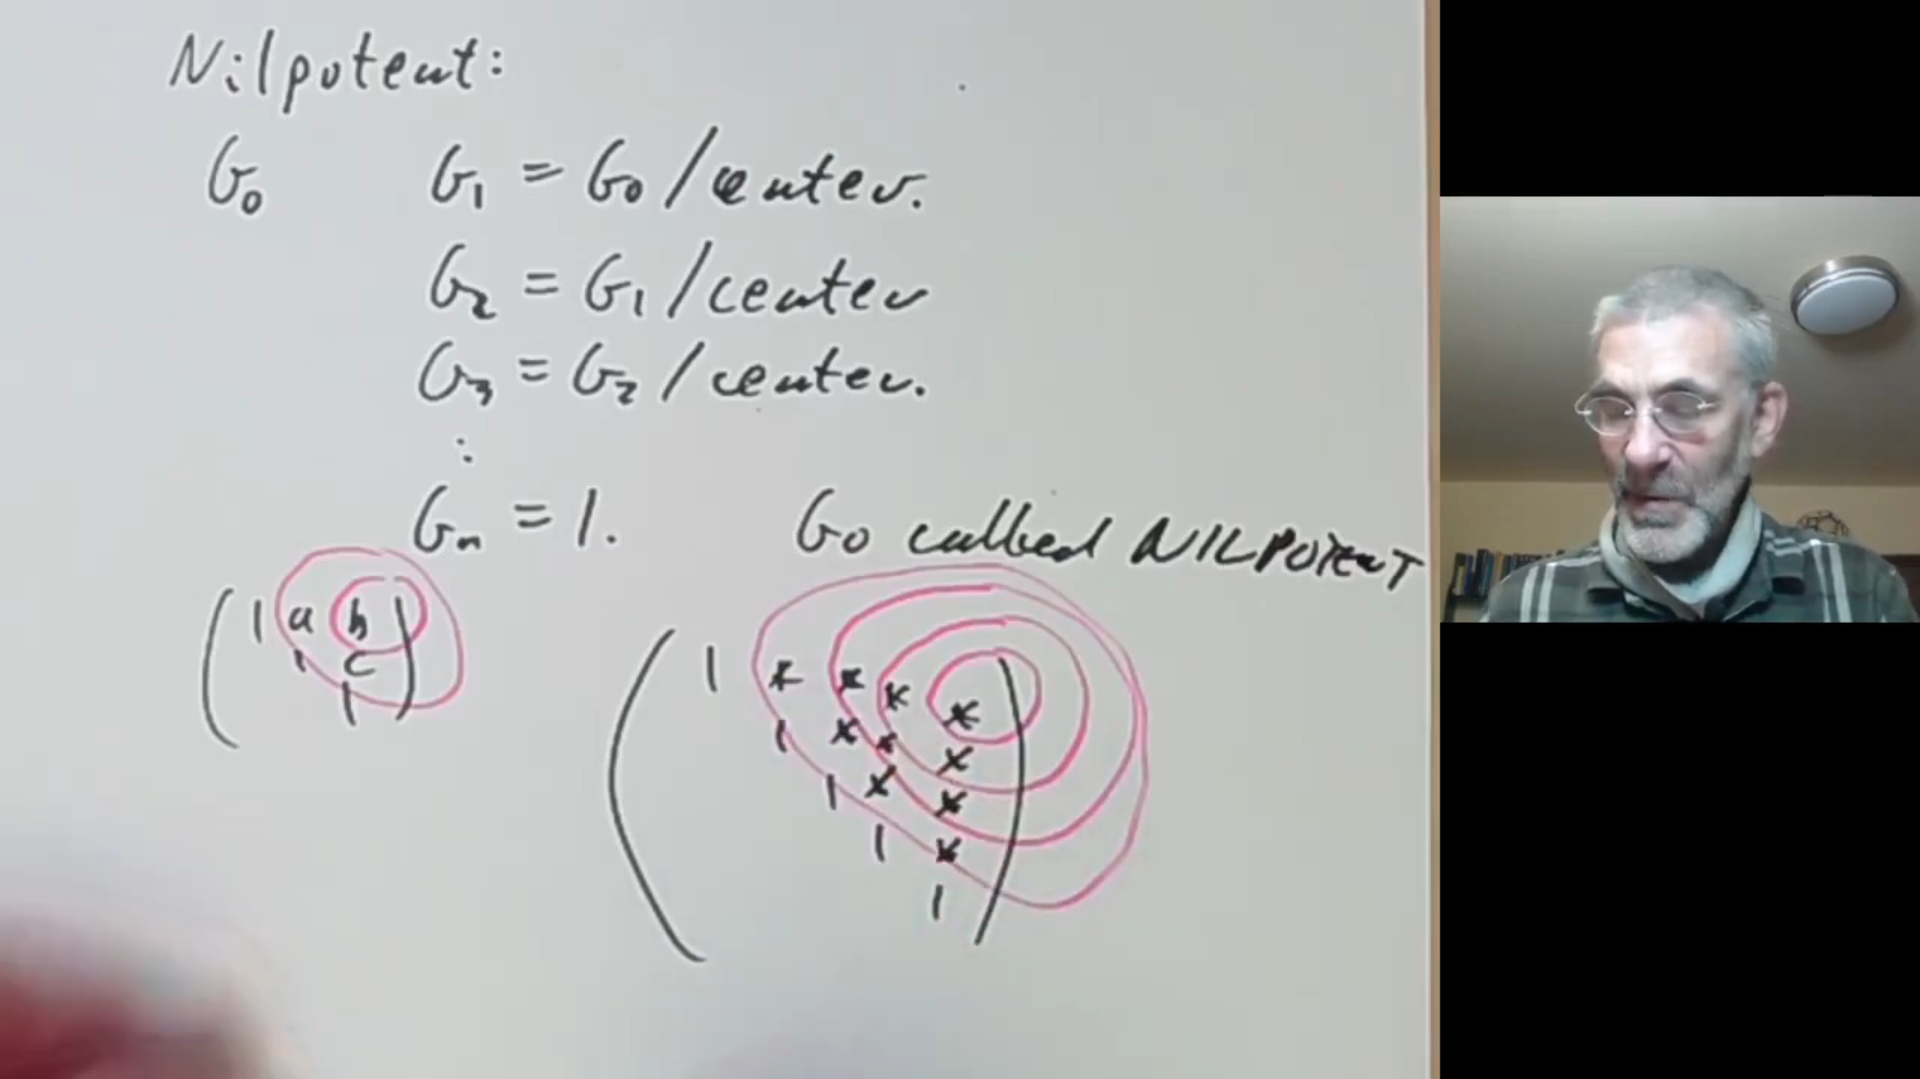 Nilpotent:
G₀ G₁ = G₀/center.
G₂ = G₁/center
G₃ = G₂/center.
:
Gₙ = 1. G₀ called NILPOTENT
( 1 a b )
1 c
1
( 1 * * * * )
1 * * *
1 * *
1 *
1